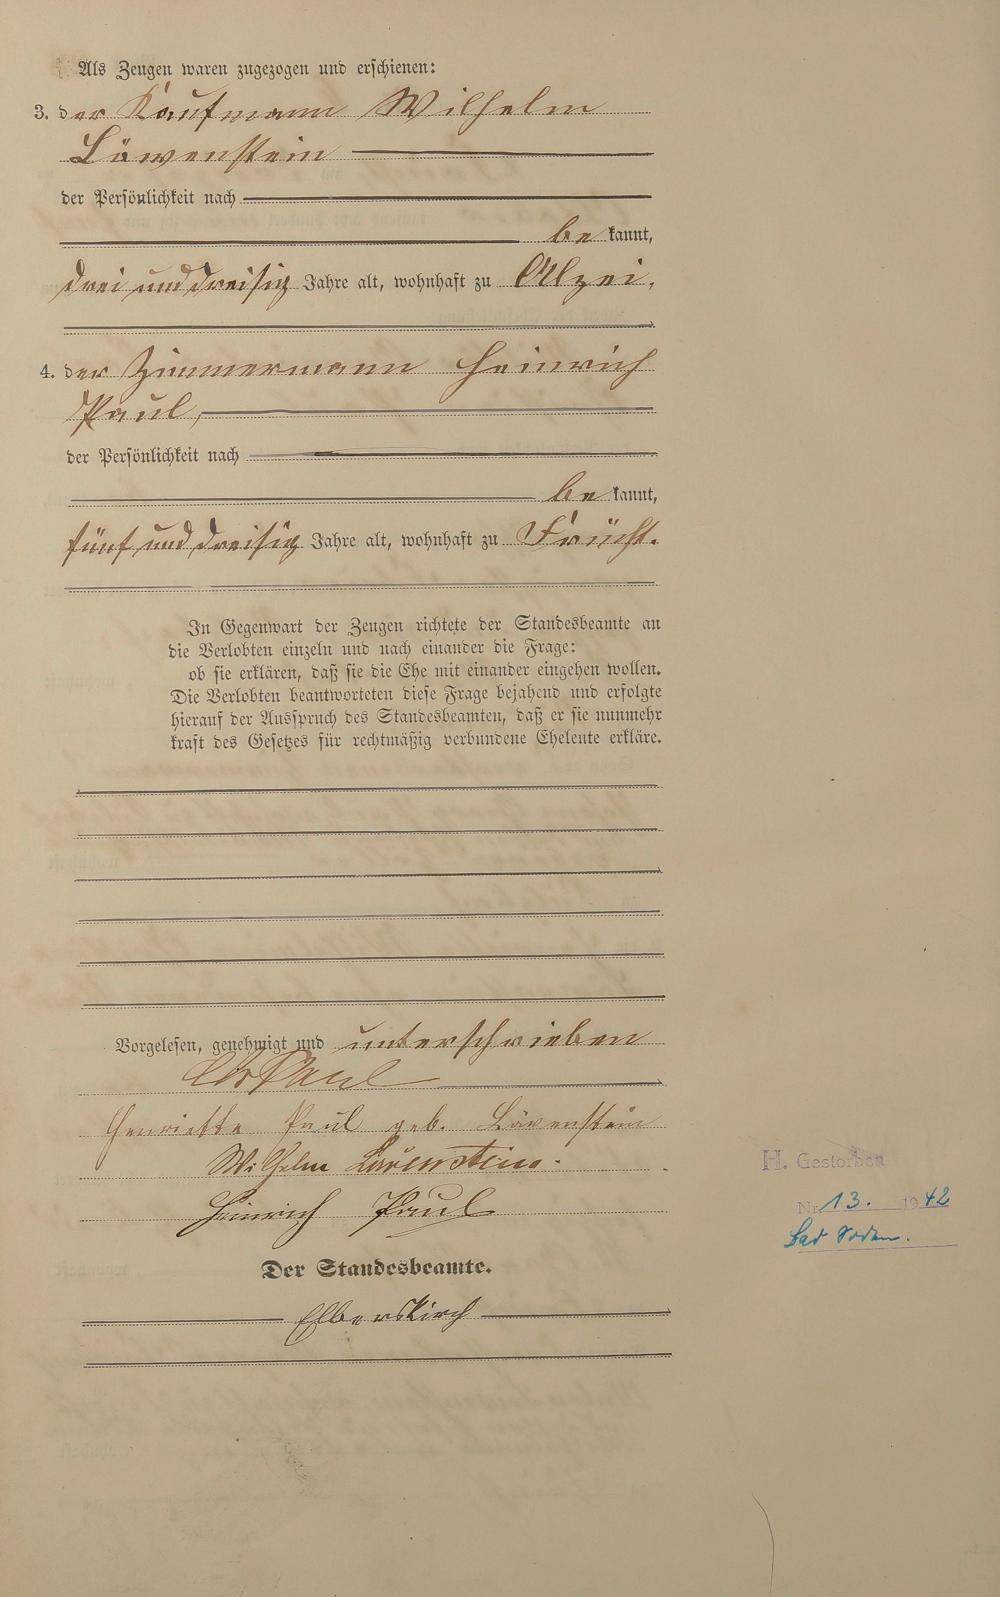 Als Zeugen waren zugezogen und erschienen:
3. der Kaufmann Wilhelm
Löwenstein
der Persönlichkeit nach
be kannt,
drei und dreisig Jahre alt, wohnhaft zu Alzei.
4. der Zimmermann Heinrich
Paul,
der Persönlichkeit nach
be kannt,
fünf und dreisig Jahre alt, wohnhaft zu Frücht.
In Gegenwart der Zeugen richtete der Standesbeamte an
die Verlobten einzeln und nach einander die Frage:
ob sie erklären, daß sie die Ehe mit einander eingehen wollen.
Die Verlobten beantworteten diese Frage bejahend und erfolgte
hierauf der Ausspruch des Standesbeamten, daß er sie nunmehr
kraft des Gesetzes für rechtmäßig verbundene Eheleute erkläre.
Vorgelesen, genehmigt und unterschrieben
Paul
Henriette Paul geb. Löwenstein
Wilhelm Löwenstein.
Heinrich Paul
Der Standesbeamte.
Elberskirch
H. Gestorben
Nr. 13. 1942
Bad Soden.